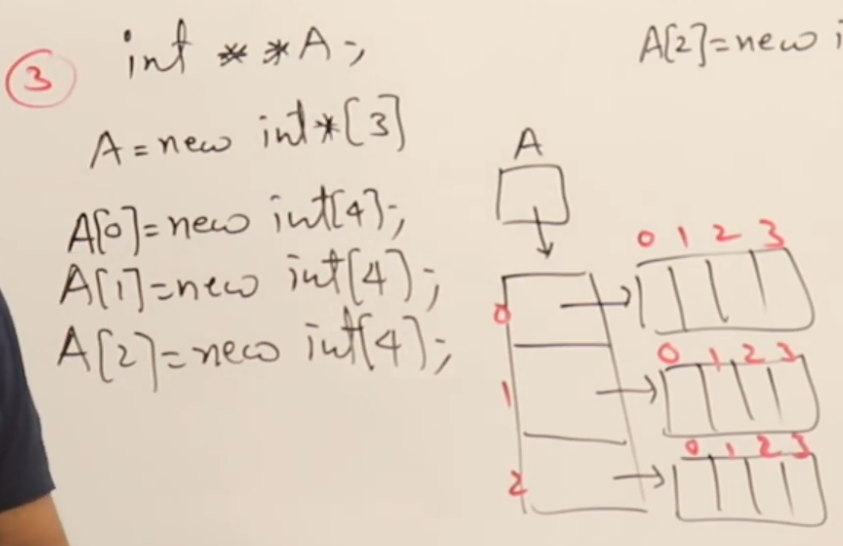 3
int **A;
A=new int*[3]
A[0]=new int[4];
A[1]=new int[4];
A[2]=new int[4];
A[2]=new i
A
0 1 2 3
0
0 1 2 3
1
0 1 2 3
2